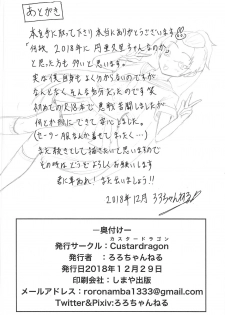 あとがき
本を手に取って下さり本当にありがとうございます
「何故、2018年に円亜久里ちゃんなのか」
と思った方も多いと思います。
実は僕自身もよく分からないのですが
なんとなくそんな気分だったのです 笑
初めての
何とか形にできて安心しました。
また描きたいと思いますので
その時はどうぞよろしくお願いします
君に幸あれ!また出会いましょう!!
2018年12月 ろろちゃんねる
―奥付け―
カスタードラゴン
発行サークル:Custardragon
発行者:ろろちゃんねる
発行日2018年12月29日
印刷会社:しまや出版
メールアドレス:roronamba1333@gmail.com
Twitter&Pixiv:ろろちゃんねる